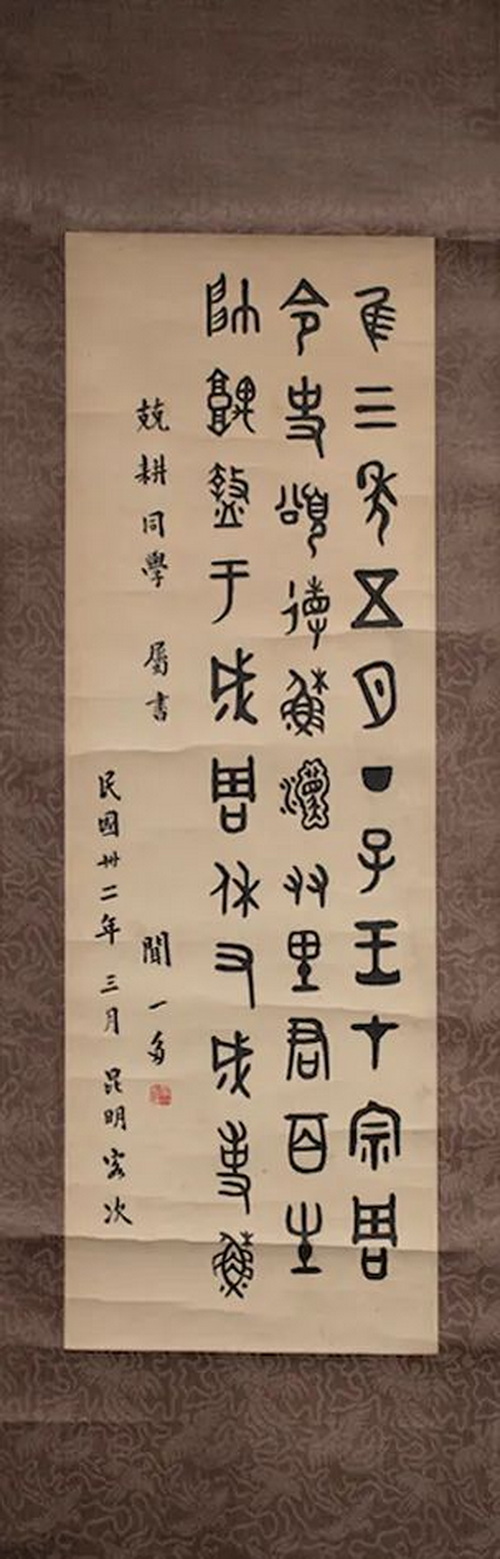 隹三年五月丁子王才宗周
令史頌徝穌友里君百生
帥盩于成周休又成事穌
兢耕同學 屬書 聞一多
民國卅二年三月昆明客次